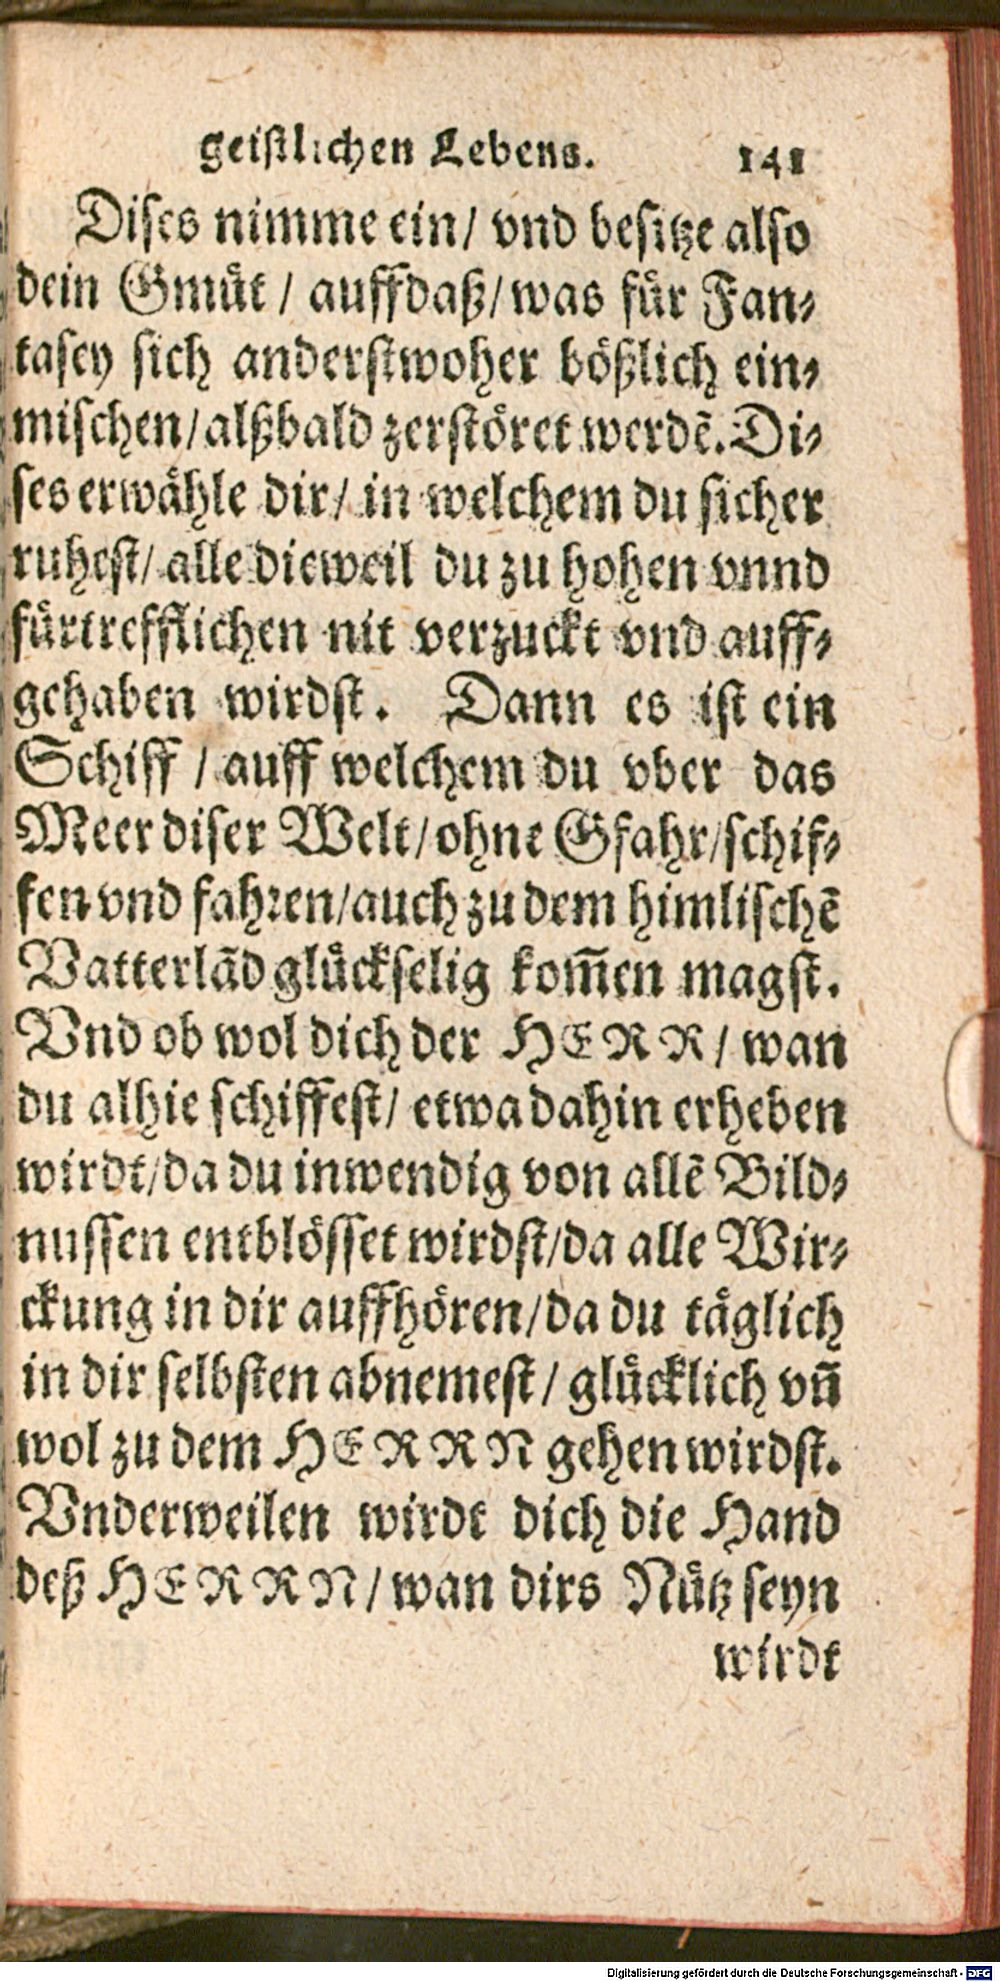 geistlichen Lebens. 141
Dises nimme ein/ vnd besitze also
dein Gmüt / auffdaß/ was für Fan-
tasey sich anderstwoher bößlich ein-
mischen/ alßbald zerstöret werdẽ. Di-
ses erwähle dir/ in welchem du sicher
ruhest/ alle dieweil du zu hohen vnnd
fürtrefflichen nit verzuckt vnd auff-
gehaben wirdst. Dann es ist ein
Schiff / auff welchem du vber das
Meer diser Welt/ ohne Gfahr/ schif-
fen vnd fahren/ auch zu dem himlischẽ
Vatterlãd glückselig kom̃en magst.
Vnd ob wol dich der HERR/ wan
du alhie schiffest/ etwa dahin erheben
wirdt/ da du inwendig von allẽ Bild-
nussen entblösset wirdst/ da alle Wir-
ckung in dir auffhören/ da du täglich
in dir selbsten abnemest/ glücklich vñ
wol zu dem HERRN gehen wirdst.
Vnderweilen wirdt dich die Hand
deß HERRN/ wan dirs Nütz seyn
wirdt
Digitalisierung gefördert durch die Deutsche Forschungsgemeinschaft - DFG